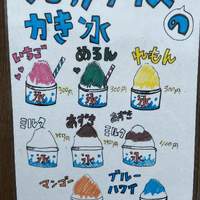 の
かき氷
いちご
めろん
れもん
300円
300円
300円
氷
氷
氷
ミルク
あずき
あずき
ミルク
350円
350円
400円
氷
氷
氷
マンゴー
ブルー
ハワイ